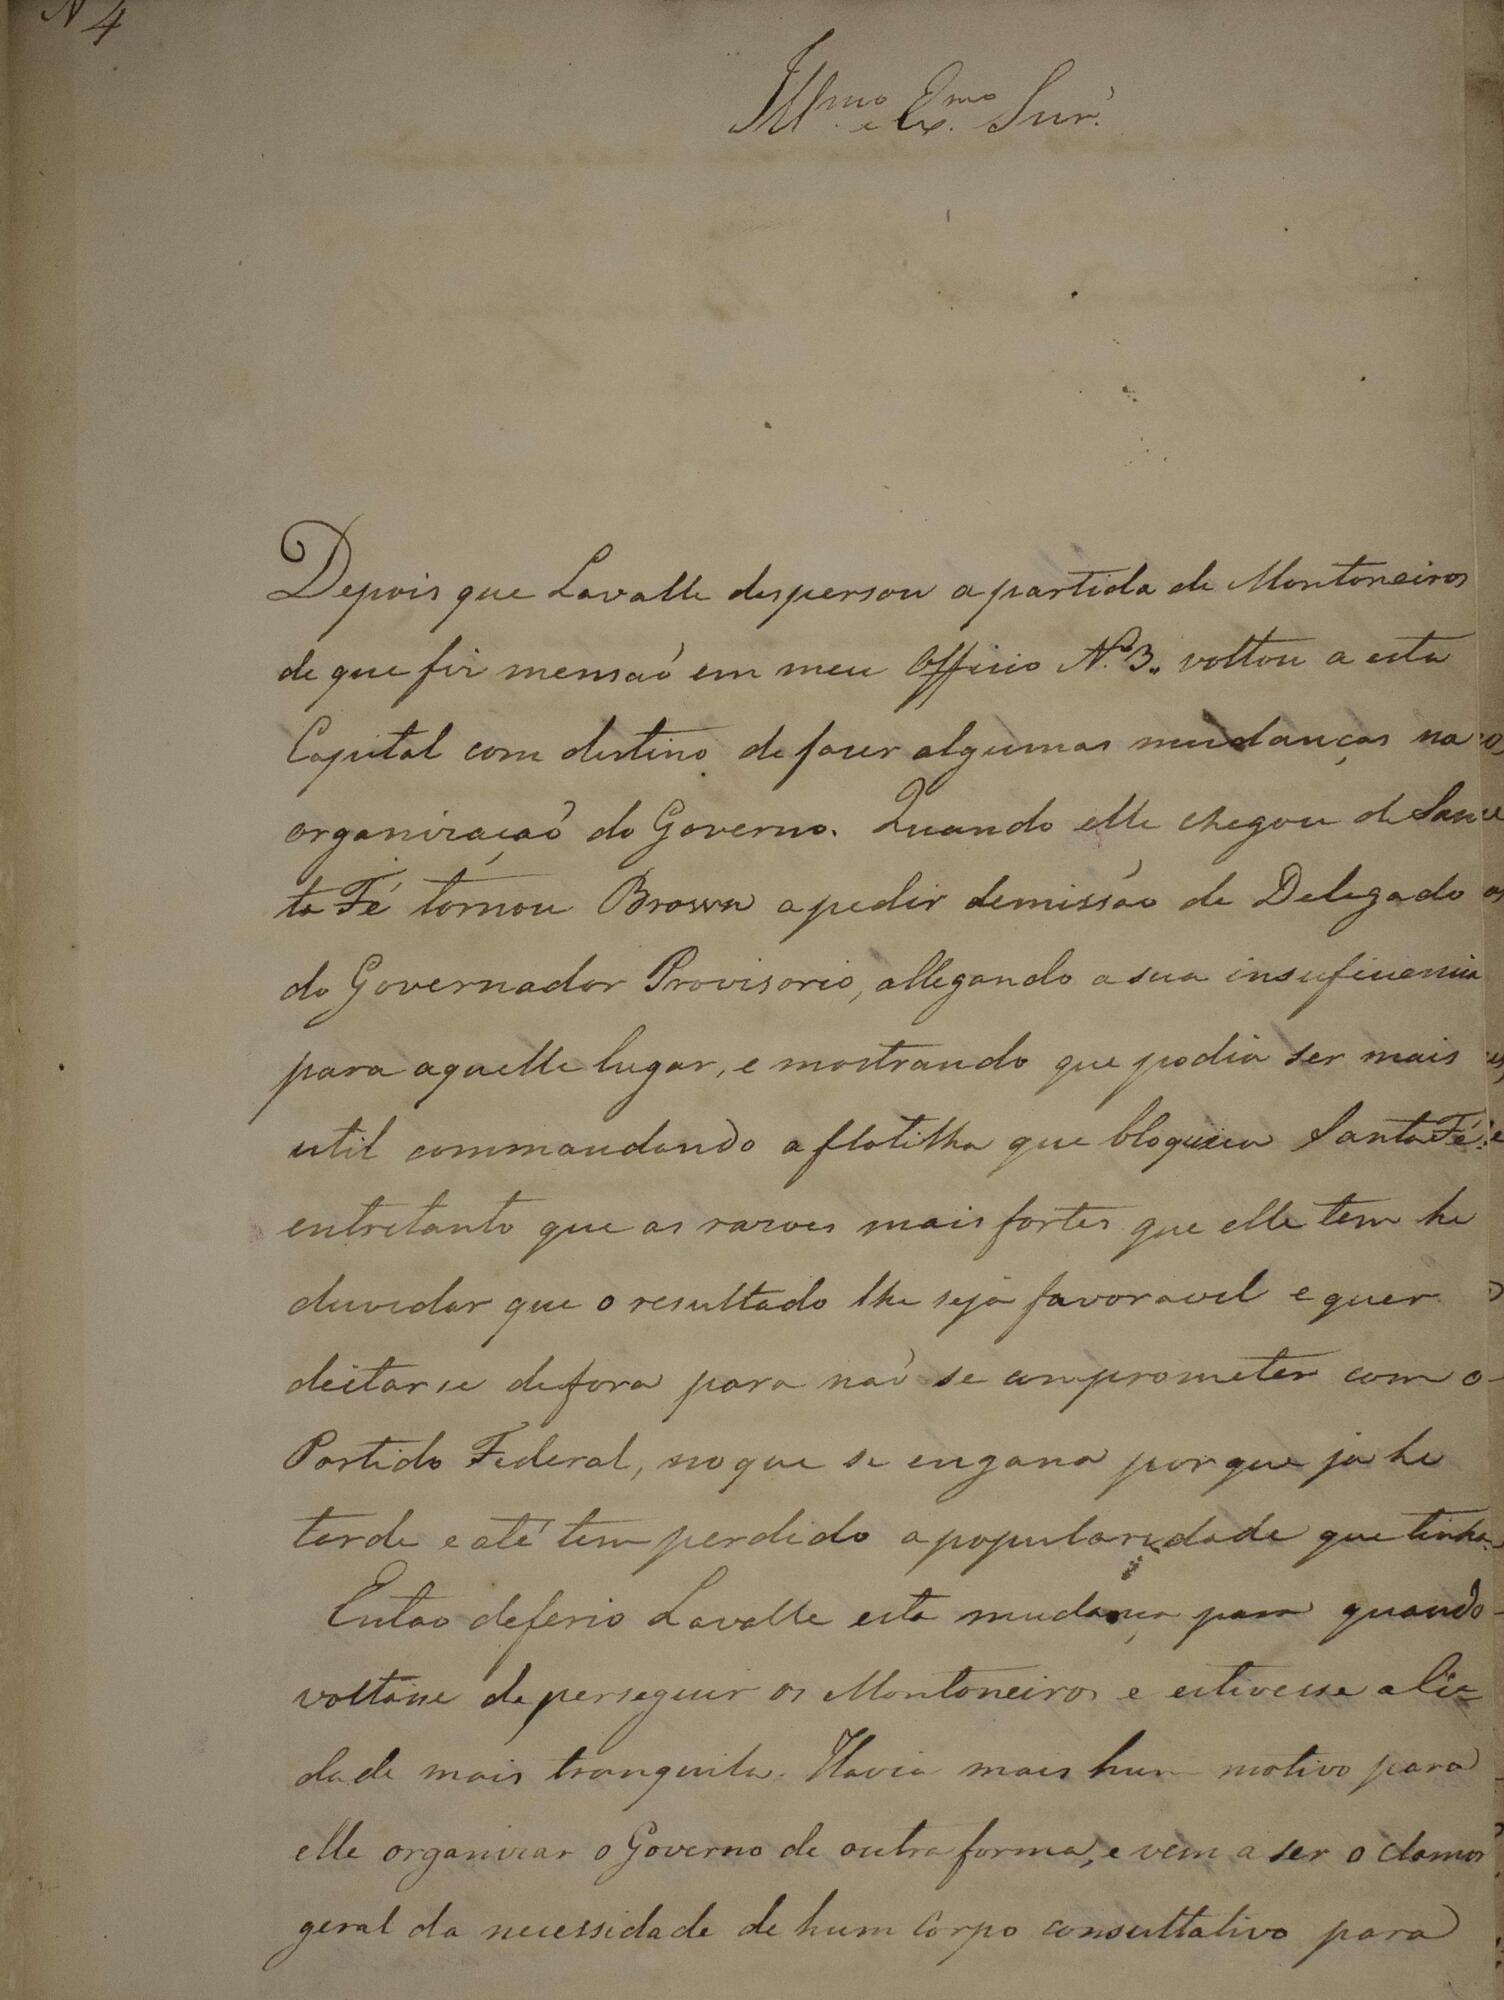 N 4
Ill.mo e Ex.mo Snr.
Depois que Lavalle despersou a partida de Montoneiros
de que fiz mensaõ em meu Officio N.º 3. voltou a esta
Capital com destino de fazer algumas mudanças na
organizaçaõ do Governo. Quando elle chegou de San
ta Fé tornou Brown a pedir demissão de Delegado
do Governador Provisorio, allegando a sua insuficiencia
para aquelle lugar, e mostrando que podia ser mais
util commandando a flotilha que bloqueia Santa Fé:
entretanto que as razoes mais fortes que elle tem he
duvidar que o resultado lhe seja favoravel e quer
deitarse de fora para naõ se comprometer com o
Partido Federal, no que se engana por que ja he
tarde e até tem perdido a popularidade que tinha.
Entao deferio Lavalle esta mudança para quando
voltasse de perseguir os Montoneiros e estivesse a Ci=
dade mais tranquila. Havia mais hum motivo para
elle organizar o Governo de outra forma, e vem a ser o clamor
geral da necessidade de hum Corpo consultativo para